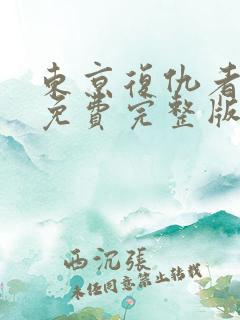 東京復仇者
免費完整版
西沉張
未经同意禁止转载